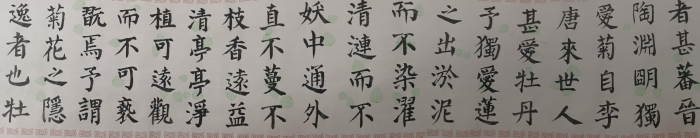 者甚蕃晉
陶淵明獨
愛菊自李
唐來世人
甚愛牡丹
予獨愛蓮
之出淤泥
而不染濯
清漣而不
妖中通外
直不蔓不
枝香遠益
清亭亭淨
植可遠觀
而不可褻
翫焉予謂
菊花之隱
逸者也牡